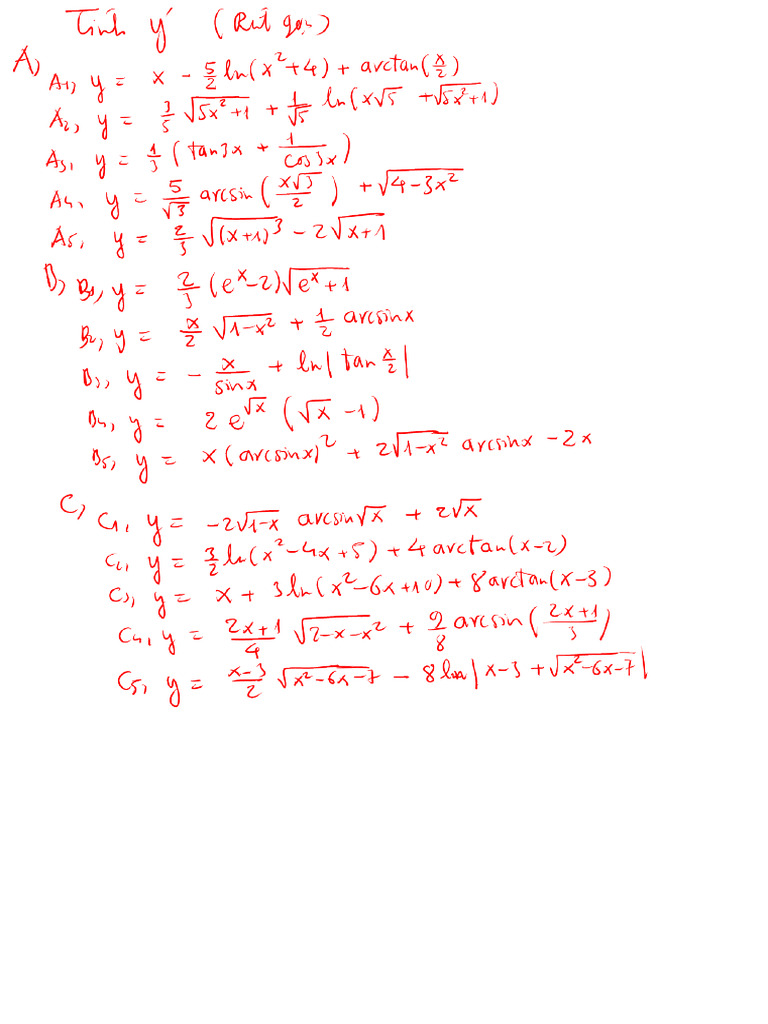 Tính y' (Rút gọn)
A)
A1, y = x - 5/2 ln(x² + 4) + arctan(x/2)
A2, y = 3/5 √(5x²+1) + 1/√5 ln(x√5 + √(5x²+1))
A3, y = 1/3 (tan3x + 1/cos3x)
A4, y = 5/√3 arcsin(x√3/2) + √(4-3x²)
A5, y = 2/3 √((x+1)³) - 2√(x+1)
B, B1, y = 2/3 (eˣ-2)√(eˣ+1)
B2, y = x/2 √(1-x²) + 1/2 arcsinx
B3, y = - x/sinx + ln|tan x/2|
B4, y = 2e^√x (√x - 1)
B5, y = x(arcsinx)² + 2√(1-x²) arcsinx - 2x
C, C1, y = -2√(1-x) arcsin√x + 2√x
C2, y = 3/2 ln(x²-4x+5) + 4arctan(x-2)
C3, y = x + 3ln(x²-6x+10) + 8arctan(x-3)
C4, y = (2x+1)/4 √(2-x-x²) + 9/8 arcsin((2x+1)/3)
C5, y = (x-3)/2 √(x²-6x-7) - 8ln|x-3 + √(x²-6x-7)|